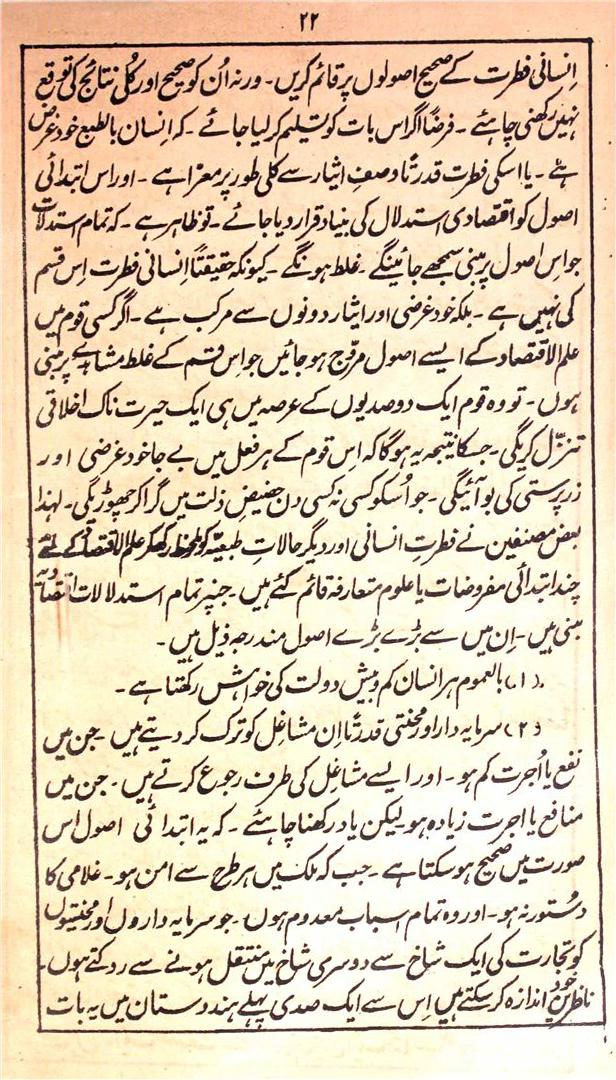 ۲۲
اِنسانی فطرت کے صحیح اصولوں پر قائم کریں۔ ورنہ اُن کو صحیح اور کُلی نتائج کی توقع
نہیں رکھنی چاہئے۔ فرضًا اگر اس بات کو تسلیم کر لیا جائے۔ کہ اِنسان بالطبع خود غرض
ہے۔ یا اسکی فطرت قدرتًا وصفِ ایثار سے کلی طور پر معرّا ہے۔ اور اس ابتدائی
اصول کو اقتصادی استدلال کی بنیاد قرار دیا جائے۔ تو ظاہر ہے۔ کہ تمام استدلالات
جو اِس اصول پر مبنی سمجھے جائینگے۔ غلط ہونگے۔ کیونکہ حقیقتًا اِنسانی فطرت اِس قسم
کی نہیں ہے۔ بلکہ خود غرضی اور ایثار دونوں سے مرکب ہے۔ اگر کسی قوم میں
علم الاقتصاد کے ایسے اصول مروّج ہو جائیں جو اِس قسم کے غلط مشاہدے پر مبنی
ہوں۔ تو وہ قوم ایک دو صدیوں کے عرصہ میں ہی ایک حیرت ناک اخلاقی
تنزّل کریگی۔ جسکا نتیجہ یہ ہوگا کہ اِس قوم کے ہر فعل میں بے جا خود غرضی اور
زر پرستی کی بو آئیگی۔ جو اُسکو کسی نہ کسی دن حضیضِ ذلت میں گرا کر چھوڑیگی۔ لہٰذا
بعض مصنفین نے فطرتِ انسانی اور دیگر حالاتِ طبعیّہ کو ملحوظ رکھکر علم الاقتصاد کے لئے
چند ابتدائی مفروضات یا علوم متعارفہ قائم کئے ہیں۔ جنپر تمام استدلالات اقتصادیہ
مبنی ہیں۔ اِن میں سے بڑے بڑے اصول مندرجہ ذیل ہیں۔
(۱) بالعموم ہر انسان کم و بیش دولت کی خواہش رکھتا ہے۔
(۲) سرمایہ دار اور محنتی قدرتًا اِن مشاغل کو ترک کر دیتے ہیں۔ جن میں
نفع یا اُجرت کم ہو۔ اور ایسے مشاغل کی طرف رجوع کرتے ہیں۔ جن میں
منافع یا اجرت زیادہ ہو لیکن یاد رکھنا چاہئے۔ کہ یہ ابتدائی اصول اس
صورت میں صحیح ہو سکتا ہے۔ جب کہ ملک میں ہر طرح سے امن ہو۔ غلامی کا
دستور نہ ہو۔ اور وہ تمام اسباب معدوم ہوں۔ جو سرمایہ داروں اور محنتیوں
کو تجارت کی ایک شاخ سے دوسری شاخ میں منتقل ہونے سے روکتے ہوں۔
ناظرین خود اندازہ کر سکتے ہیں اِس سے ایک صدی پہلے ہندوستان میں یہ بات